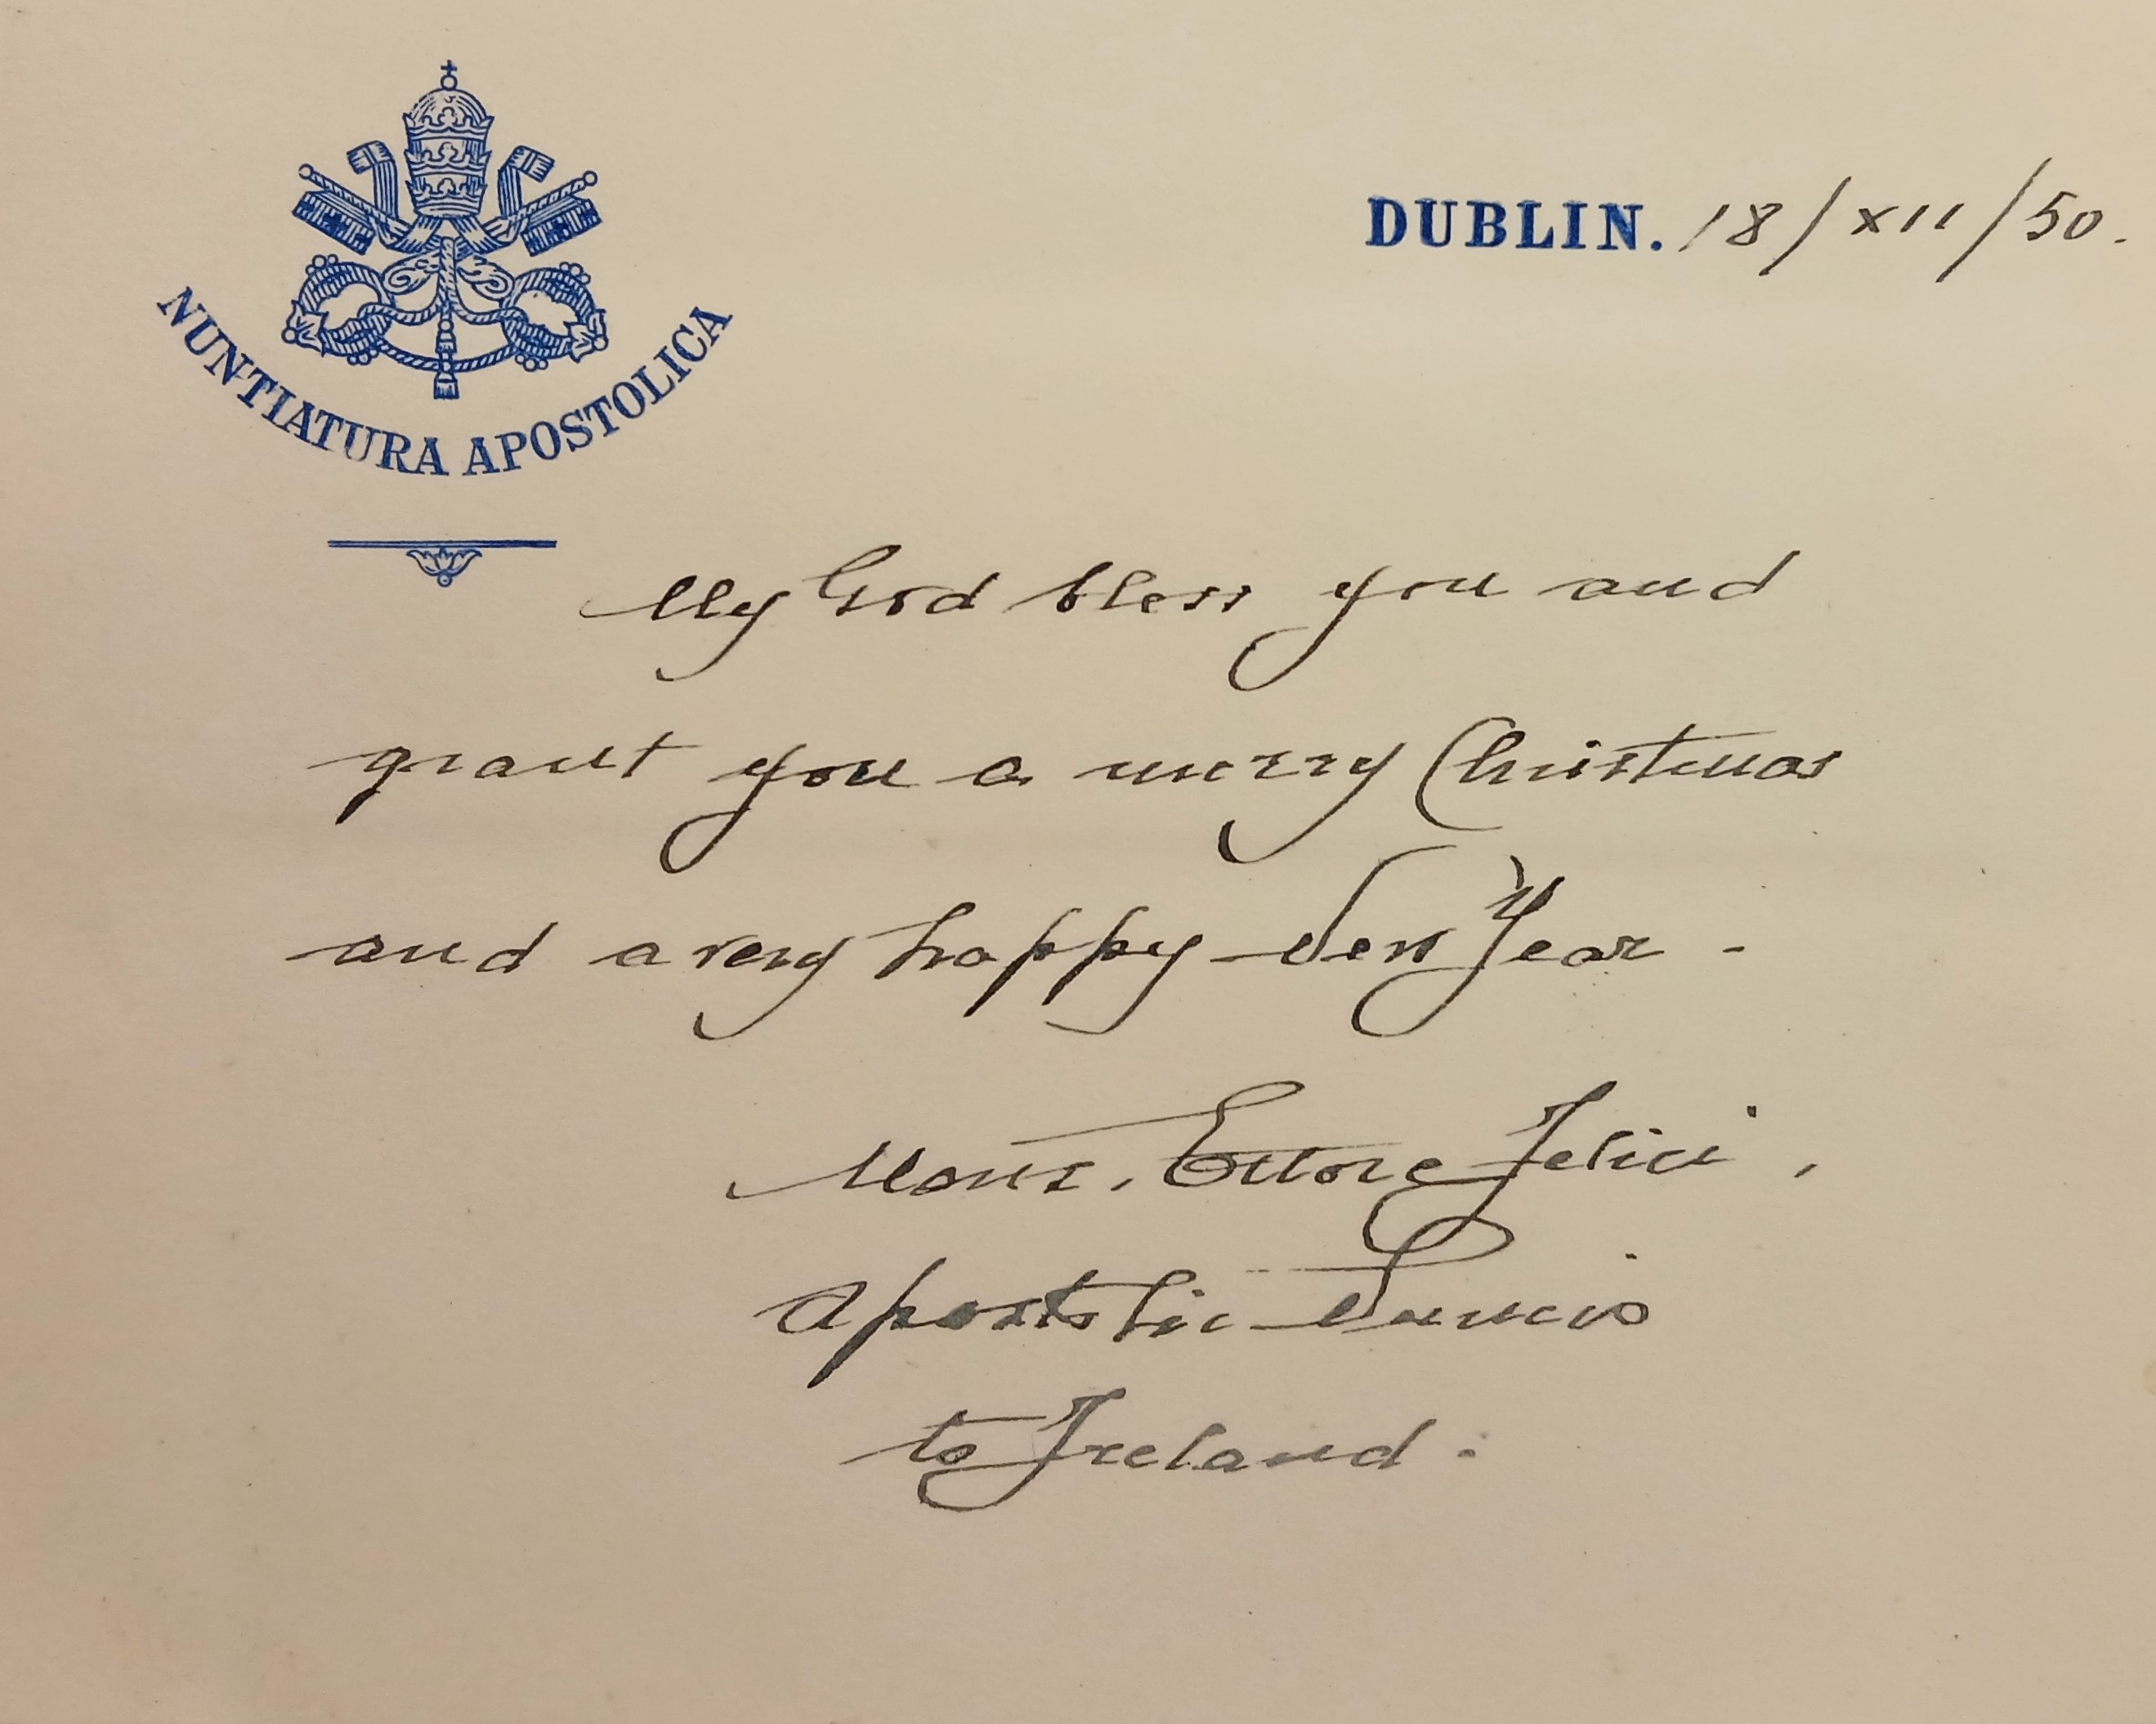 NUNTIATURA APOSTOLICA
DUBLIN. 18/XII/50.
My God bless you and
grant you a merry Christmas
and a very happy New Year -
Mons. Ettore Felici,
Apostolic Nuncio
to Ireland.